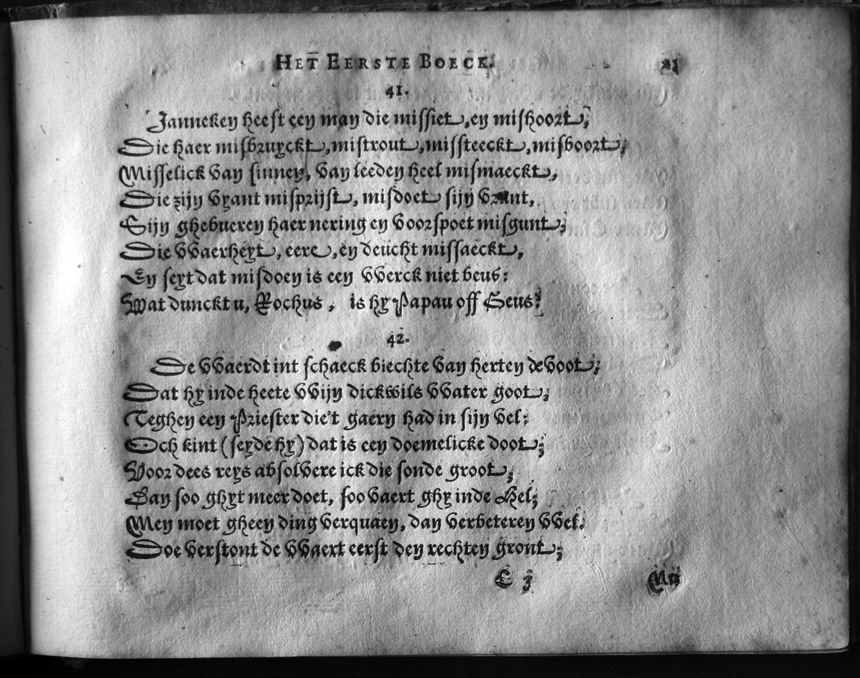 HET EERSTE BOECK. 21
41.
Janneken heeft een man die missiet, en mishoort,
Die haer misbruyckt, mistrout, missteeckt, misboort,
Misselick van sinnen, van leeden heel mismaeckt,
Die zijn vyant misprijst, misdoet sijn vrint,
Sijn ghebueren haer nering en voorspoet misgunt,
Die VVaerheyt, eere, en deucht missaeckt,
En seyt dat misdoen is een VVerck niet beus:
Wat dunckt u, Rochus, is hy Papau off Geus?
42.
De VVaerdt int schaeck biechte van herten devoot,
Dat hy inde heete VVijn dickwils VVater goot,
Teghen een Priester die't gaern had in sijn vel:
Och kint (seyde hy) dat is een doemelicke doot,
Voor dees reys absolvere ick die sonde groot,
Dan soo ghyt meer doet, soo vaert ghy inde Hel,
Men moet gheen ding verquaen, dan verbeteren VVel.
Doe verstont de VVaert eerst den rechten gront,
C 3